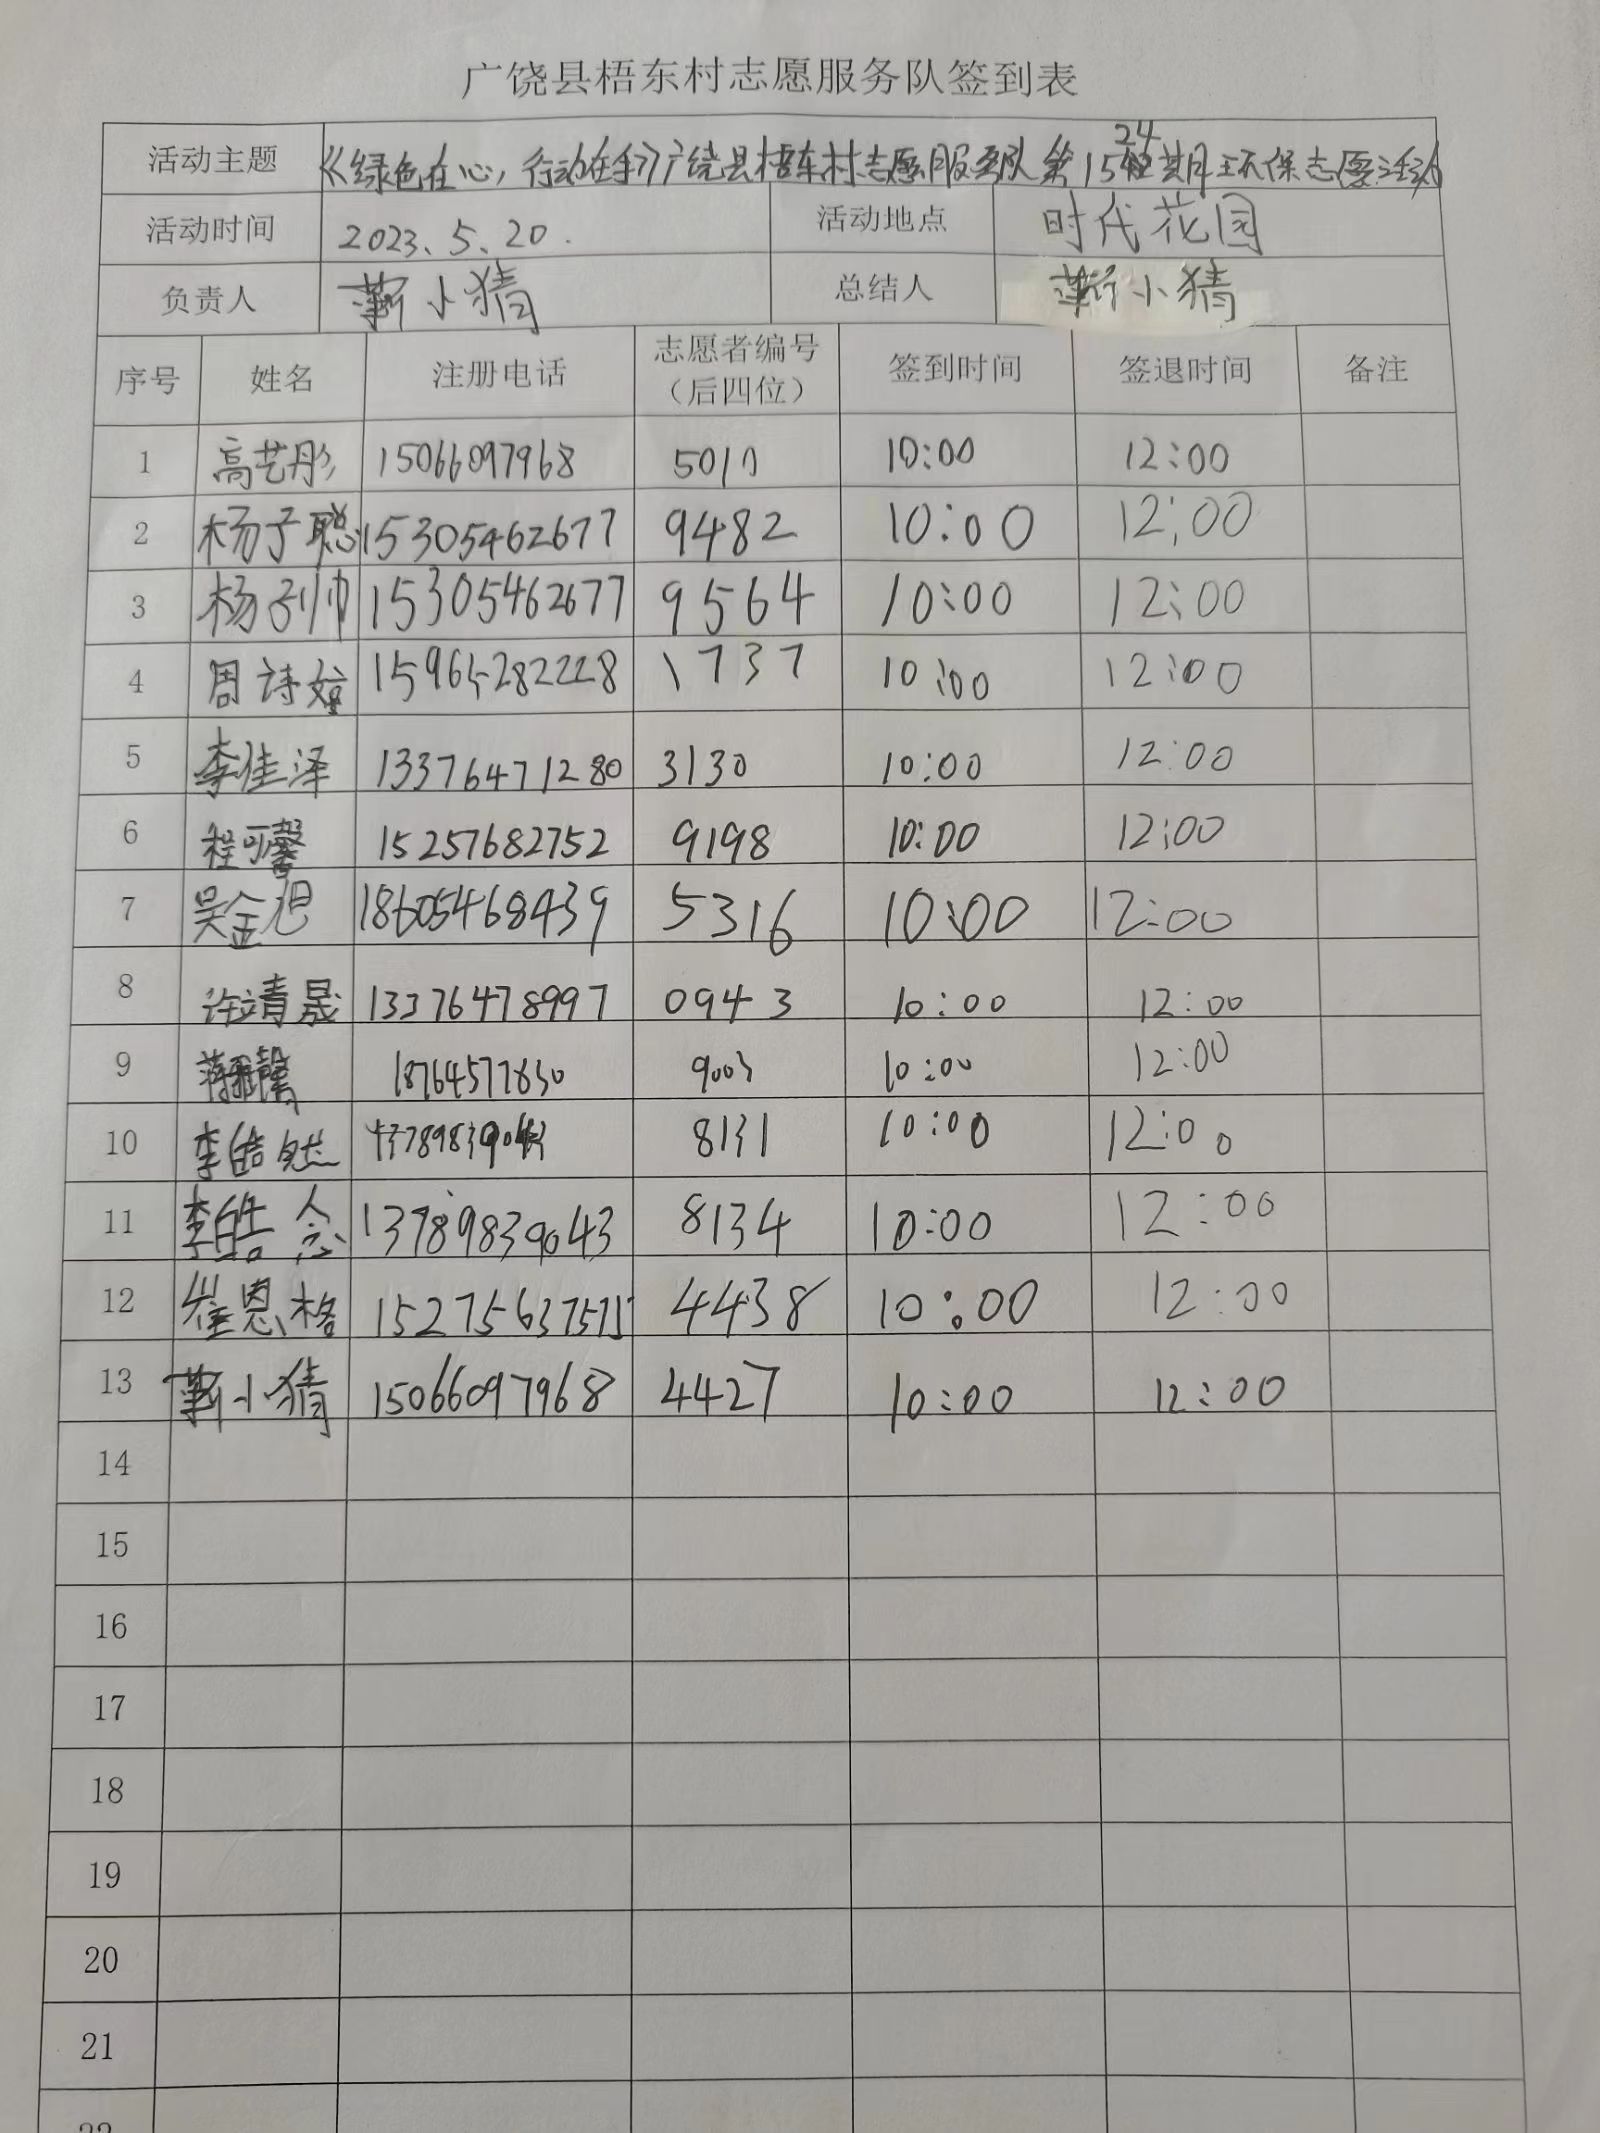 广饶县梧东村志愿服务队签到表
活动主题 《绿色在心，行动在手》广饶县梧东村志愿服务队第1524期环保志愿活动
活动时间 2023.5.20. 活动地点 时代花园
负责人 靳小猜 总结人 靳小猜
序号 姓名 注册电话 志愿者编号（后四位） 签到时间 签退时间 备注
1 高艺彤 15066097968 5010 10:00 12:00
2 杨子聪 15305462677 9482 10:00 12:00
3 杨子帅 15305462677 9564 10:00 12:00
4 周诗婷 15965282228 1737 10:00 12:00
5 李佳泽 13376471280 3130 10:00 12:00
6 程可馨 15257682752 9198 10:00 12:00
7 吴金旭 18605468439 5316 10:00 12:00
8 许靖晟 13376478997 0943 10:00 12:00
9 18764577830 9003 10:00 12:00
10 李皓然 8131 10:00 12:00
11 李皓念 13789839043 8134 10:00 12:00
12 崔恩格 4438 10:00 12:00
13 靳小猜 15066097968 4427 10:00 12:00
14
15
16
17
18
19
20
21